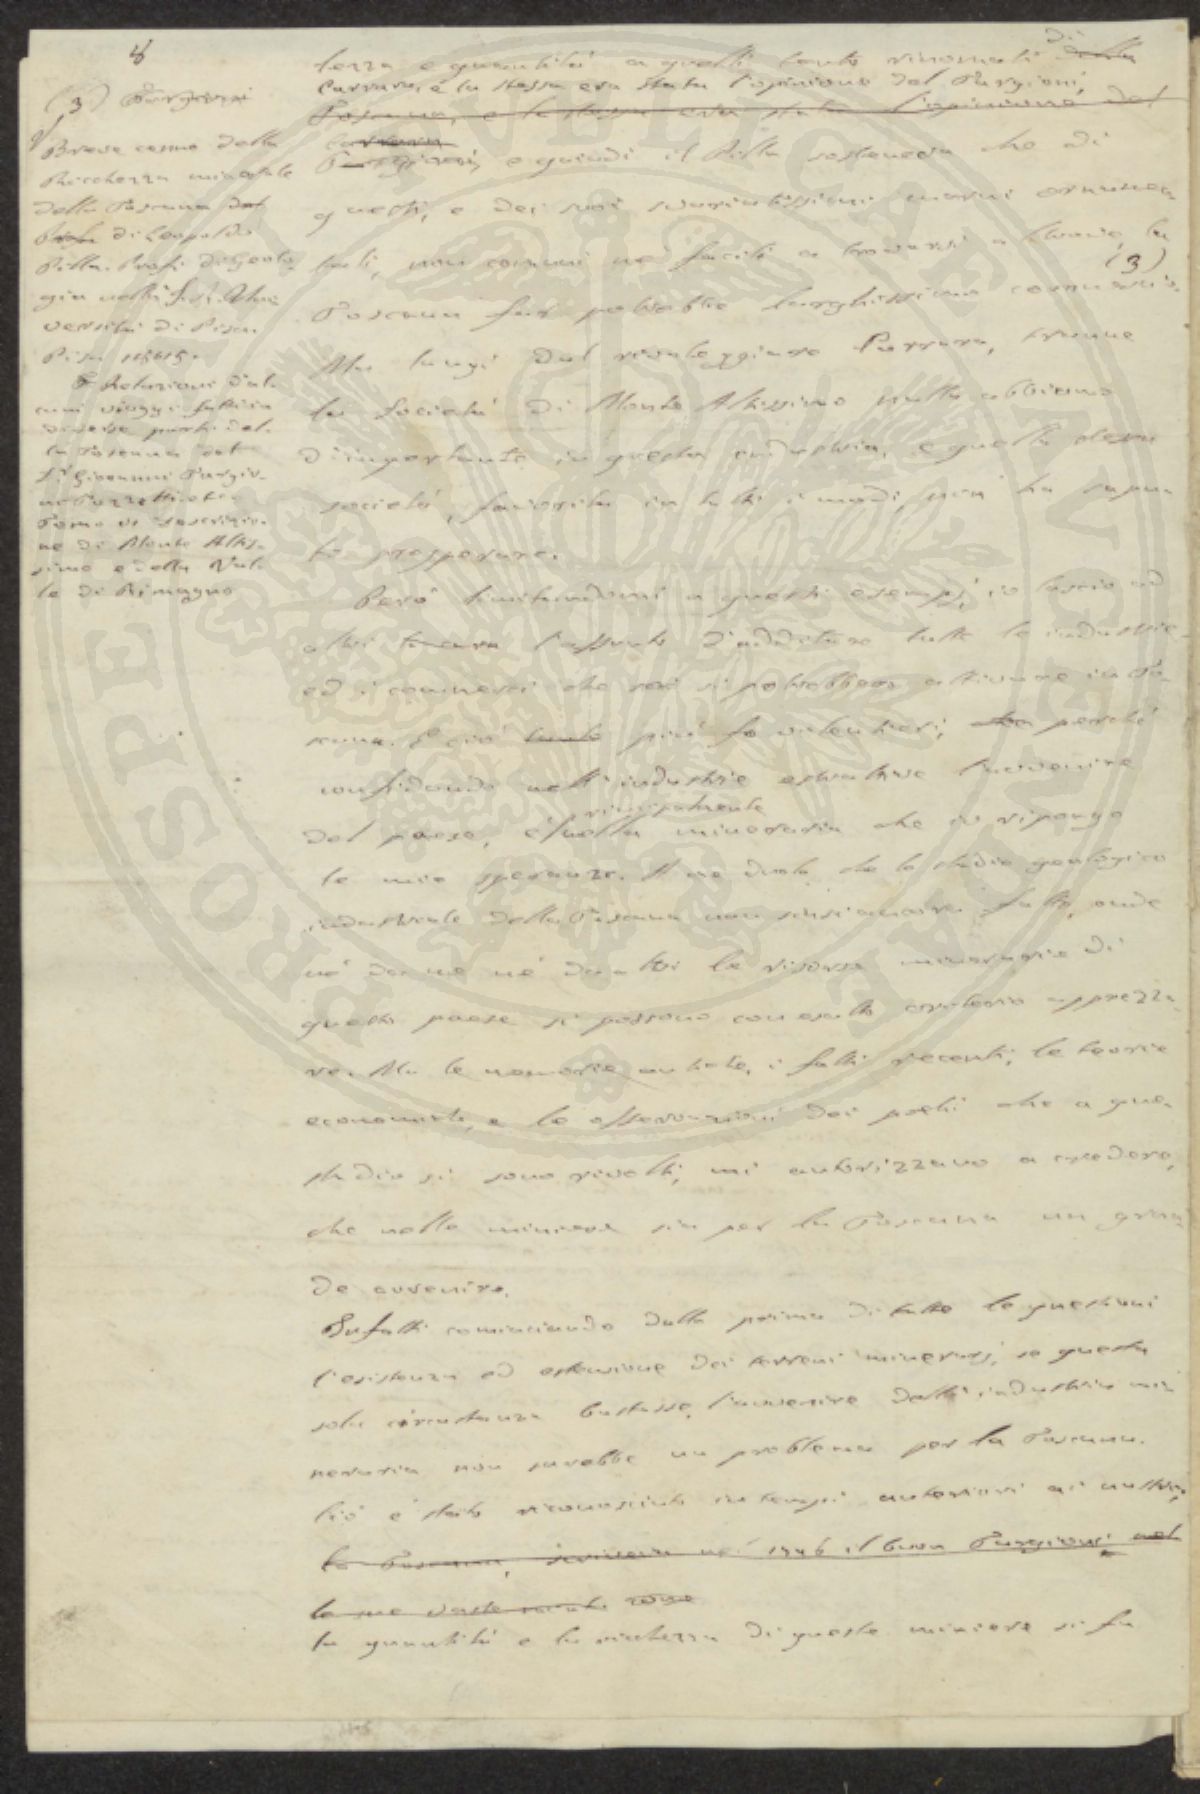 8
(3) Targioni
Breve cenno della
Ricchezza minerale
della Toscana del
Prof. di Leopoldo
Pilla. Prof. di Geolo-
gia nella I. R. Uni-
versità di Pisa.
Pisa 1845.
E Relazioni d'al-
cuni viaggi fatti in
diverse parti del-
la Toscana del
Dr. Giovanni Targio-
ni Tozzetti etc.
Tomo VI Descrizio-
ne di Monte Altis-
simo e della Val-
le di Rimagno
di
tezza e quantità a quelli tanto rinomati della
Carrara, e la stessa era stata l'opinione del Targioni,
Toscana, e la stessa era stata l'opinione del
Carrara
Targioni, e quindi il Pilla sosteneva che di
questi, e dei suoi svariatissimi marmi ornamen-
tali, non comuni nè facili a trovarsi altrove, la
(3)
Toscana far potrebbe larghissimo commercio.
Ma lungi dal rivaleggiare Carrara, tranne
la Società di Monte Altissimo nulla abbiamo
d'importante in questa industria, e quella stessa
società, favorita in tutti i modi, non ha sapu-
to prosperare.
Però limitandomi a questi esempj, io lascio ad
altri la cura l'assunto d'additare tutte le industrie
ed i commerci che poi si potrebbero attivare in To-
scana. E ciò tanto più fo volentieri, che perchè
confidando nelle industrie estrattive l'avvenire
principalmente
del paese, è quella mineraria che io ripongo
le mie speranze. A me duole che lo studio geologico
industriale della Toscana non siasi ancora fatto, onde
nè da me nè da altri le risorse minerarie di
questo paese si possono con esatto criterio apprezza-
re. Ma le memorie antiche, i fatti recenti, le teorie
economiche, e le osservazioni dei pochi che a que-
studio si sono rivolti, mi autorizzano a credere,
che nelle miniere sia per la Toscana un gran-
de avvenire.
Infatti cominciando dalla prima di tutte le questioni
l'esistenza ed estensione dei terreni minerarj, se questa
sola circostanza bastasse, l'avvenire dell'industria mi-
neraria non sarebbe un problema per la Toscana.
Ciò è stato riconosciuto in tempi anteriori ai nostri,
la Toscana, scriveva nel 1746 il buon Targioni nel
le sue
la quantità e la ricchezza di queste miniere si fa